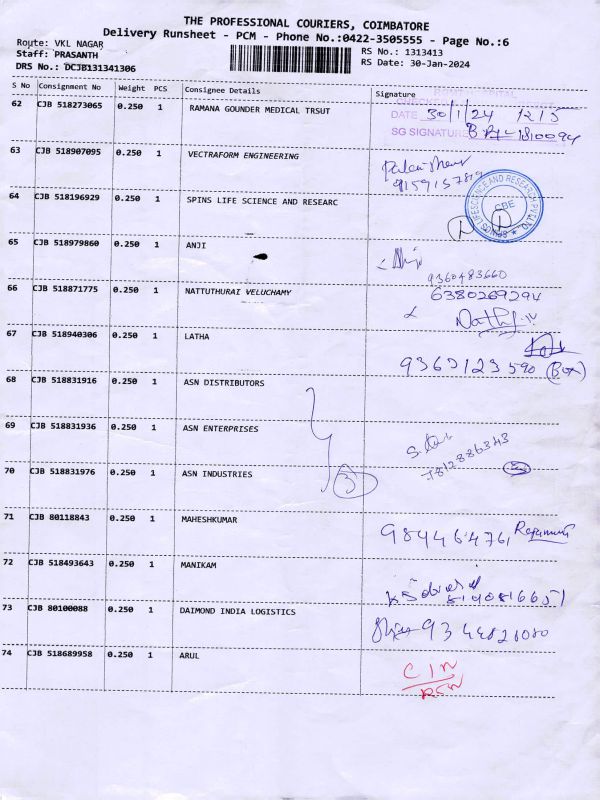 THE PROFESSIONAL COURIERS, COIMBATORE
Delivery Runsheet - PCM - Phone No.:0422-3505555 - Page No.:6
Route: VKL NAGAR
Staff: PRASANTH
RS No.: 1313413
DRS No.: DCJB131341306
RS Date: 30-Jan-2024
S No Consignment No Weight PCS Consignee Details Signature
62 CJB 518273065 0.250 1 RAMANA GOUNDER MEDICAL TRSUT
DATE 30/1/24 1215
SG SIGNATURE
63 CJB 518907095 0.250 1 VECTRAFORM ENGINEERING
64 CJB 518196929 0.250 1 SPINS LIFE SCIENCE AND RESEARC
CBE
65 CJB 518979860 0.250 1 ANJI
9360483660
66 CJB 518871775 0.250 1 NATTUTHURAI VELUCHAMY
6380269294
67 CJB 518940306 0.250 1 LATHA
9360123590 (Box)
68 CJB 518831916 0.250 1 ASN DISTRIBUTORS
69 CJB 518831936 0.250 1 ASN ENTERPRISES
7812886343
70 CJB 518831976 0.250 1 ASN INDUSTRIES
3
71 CJB 80118843 0.250 1 MAHESHKUMAR
72 CJB 518493643 0.250 1 MANIKAM
73 CJB 80100088 0.250 1 DAIMOND INDIA LOGISTICS
74 CJB 518689958 0.250 1 ARUL